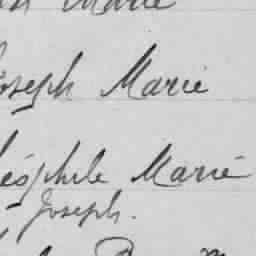 Marie
Joseph Marie
Théophile Marie
Joseph.